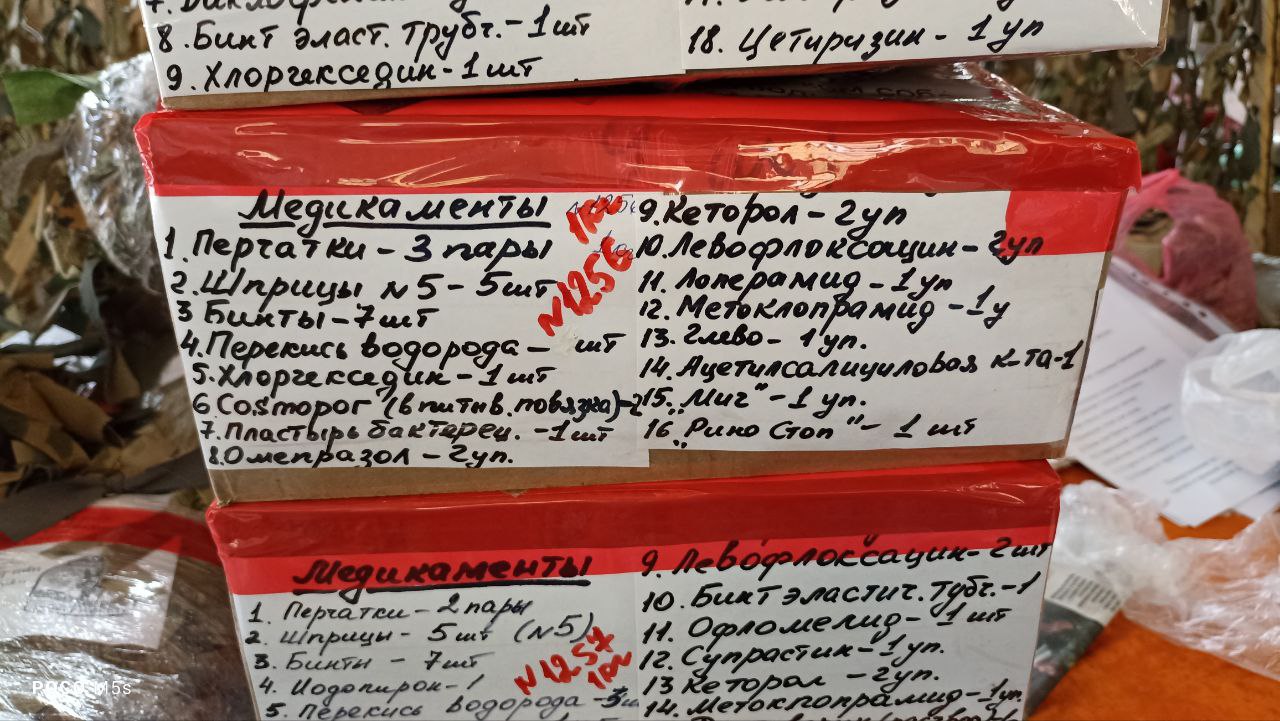 8. Бинт эласт. трубч. - 1 шт
9. Хлоргекседин - 1 шт
18. Цетиризин - 1 уп
Медикаменты
1. Перчатки - 3 пары
2. Шприцы №5 - 5 шт
3 Бинты - 7 шт
4. Перекись водорода - шт
5. Хлоргекседин - 1 шт
6 Cosmopor (впитыв. повязка) - 2
7. Пластырь бактерец. - 1 шт
8. Омепразол - 2 уп.
№1256
9. Кеторол - 2 уп
10. Левофлоксацин - 2 уп
11. Лоперамид - 1 уп
12. Метоклопрамид - 1 у
13. Глево - 1 уп.
14. Ацетилсалициловая к-та - 1
15. "Миг" - 1 уп.
16. "Рино Стоп" - 1 шт
Медикаменты
1. Перчатки - 2 пары
2. Шприцы - 5 шт (№5)
3. Бинты - 7 шт
4. Йодопирон - 1
5. Перекись водорода -
№1257
9. Левофлоксацин - 2 шт
10. Бинт эластич. тубч. - 1
11. Офломелид - 1 шт
12. Супрастин - 1 уп.
13 Кеторол - 2 уп.
14. Метоклопрамид - 1 уп
POCO M5s